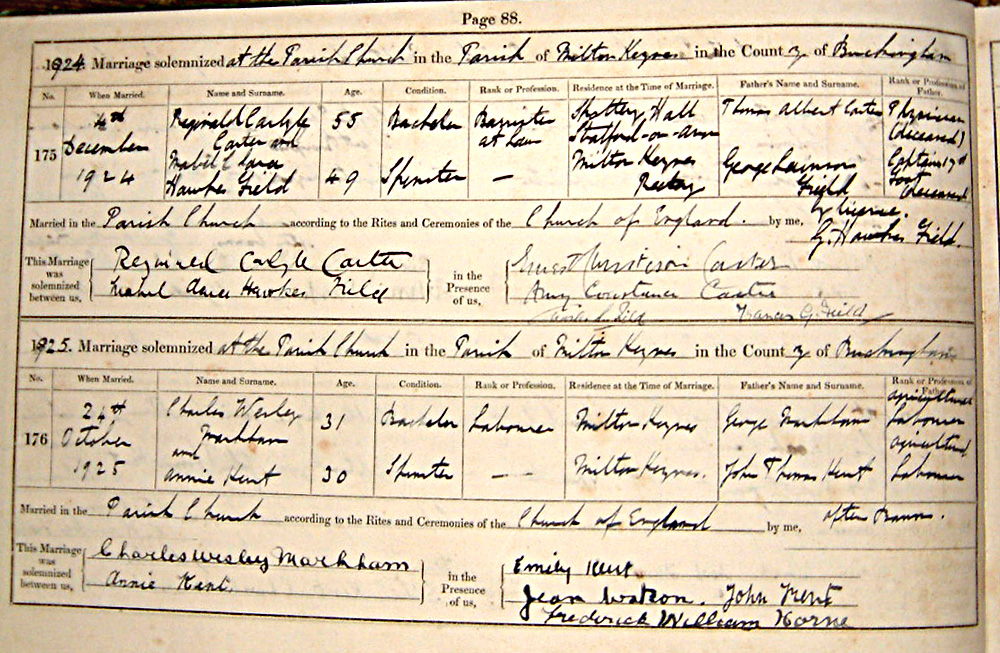 Page 88.
1924. Marriage solemnized at the Parish Church in the Parish of Milton Keynes in the County of Buckingham
No. When Married. Name and Surname. Age. Condition. Rank or Profession. Residence at the Time of Marriage. Father's Name and Surname. Rank or Profession of Father.
175 4th December 1924 Reginald Carlyle Carter 55 Bachelor Barrister at Law Shottery Hall Stratford-on-Avon Thomas Albert Carter Physician (deceased)
and
Mabel Clara Hawkes Field 49 Spinster — Milton Keynes Rectory George Field Captain (deceased)
Married in the Parish Church according to the Rites and Ceremonies of the Church of England. by licence. by me, G. Hawkes Field
This Marriage was solemnized between us, Reginald Carlyle Carter
Mabel Clara Hawkes Field
in the Presence of us, Ernest Carter
Amy Constance Carter
Field Frances G. Field
1925. Marriage solemnized at the Parish Church in the Parish of Milton Keynes in the County of Buckingham
No. When Married. Name and Surname. Age. Condition. Rank or Profession. Residence at the Time of Marriage. Father's Name and Surname. Rank or Profession of Father.
176 24th October 1925 Charles Wesley Markham 31 Bachelor Labourer Milton Keynes George Markham Agricultural Labourer
and
Annie Kent 30 Spinster — Milton Keynes. John Thomas Kent Agricultural Labourer
Married in the Parish Church according to the Rites and Ceremonies of the Church of England by me, after Banns.
This Marriage was solemnized between us, Charles Wesley Markham
Annie Kent.
in the Presence of us, Emily Kent
Jean Watson. John Kent
Frederick William Horne